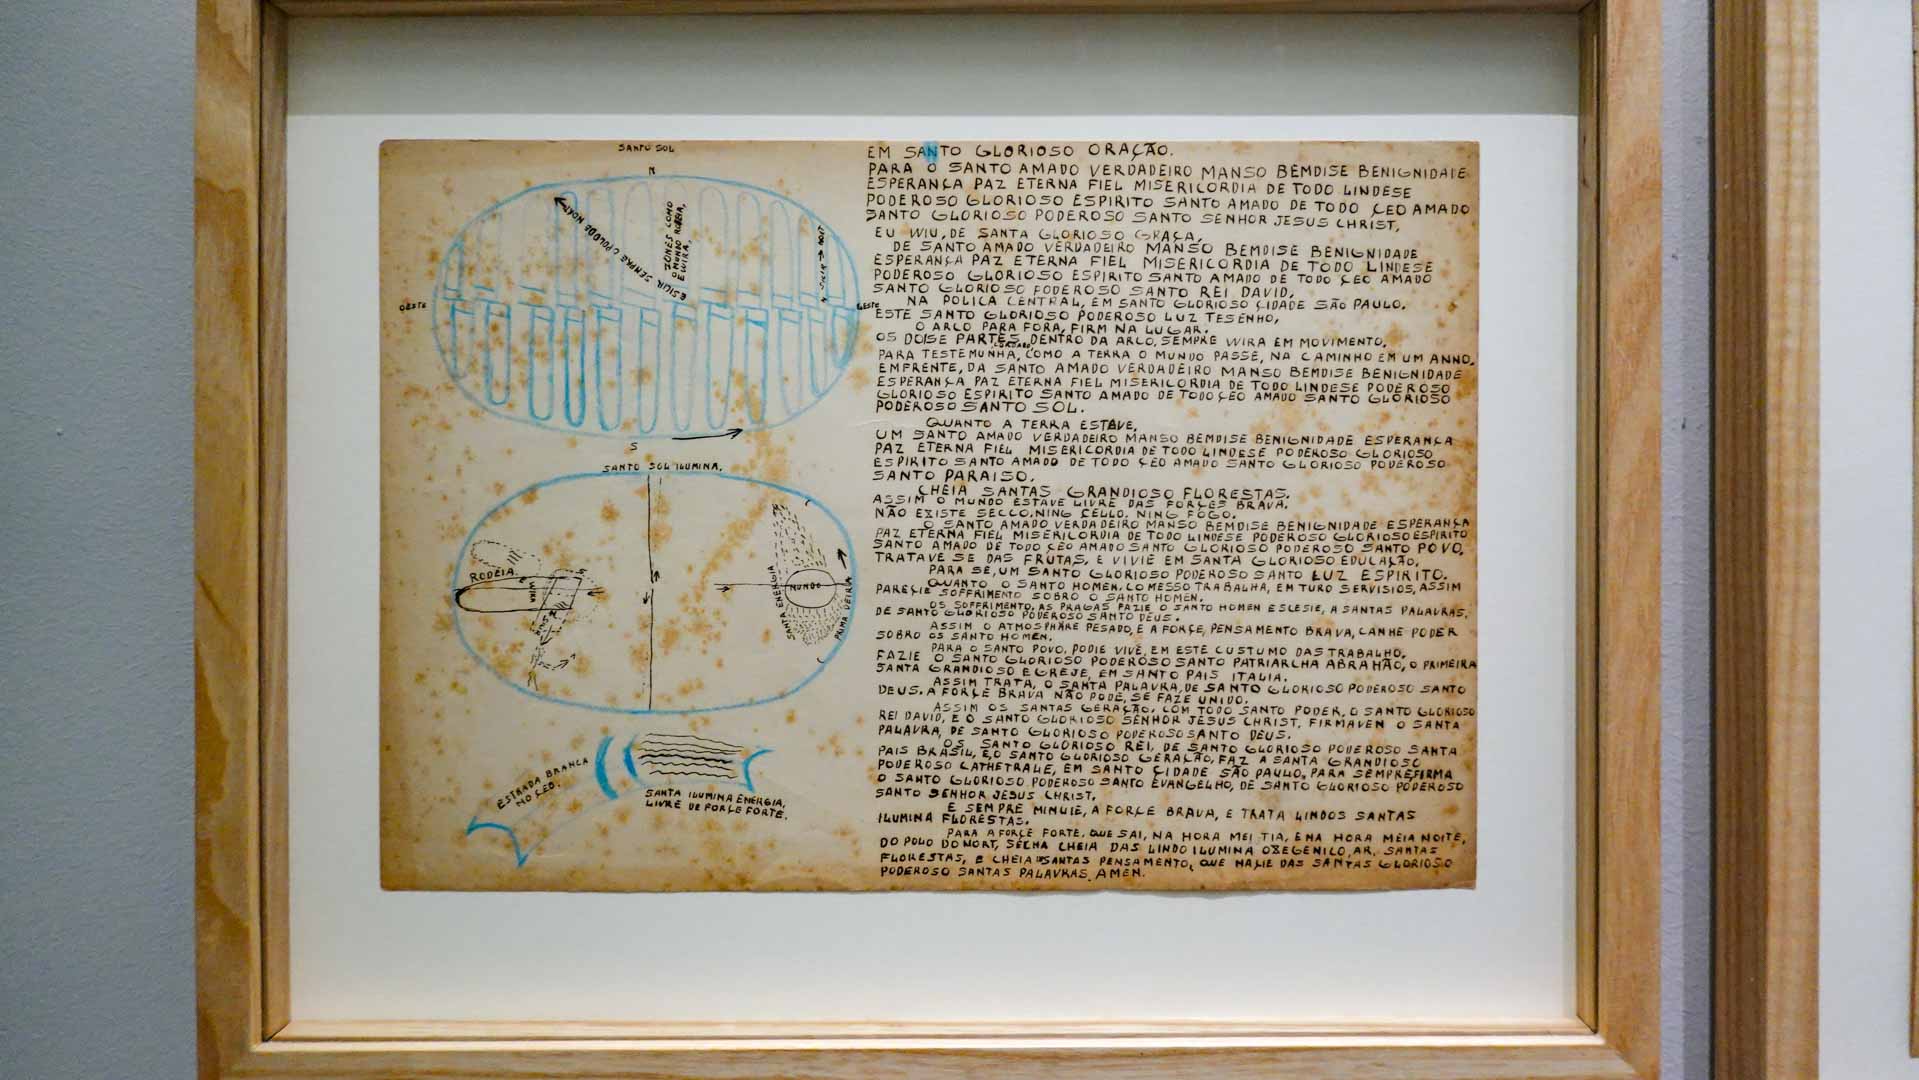 SANTO SOL
N
SEMPRE
TONES COMO
O MUNDO
OESTE
LESTE
S
SANTO SOL ILUMINA.
RODEIA
SANTA ENERGIA
MUNDO
PRIMA VEIRA
ESTRADA BRANCA
NO ÇEO.
SANTA ILUMINA ENERGIA,
LIVRE DE FORÇE FORTE.
EM SANTO GLORIOSO ORAÇÃO.
PARA O SANTO AMADO VERDADEIRO MANSO BEMDISE BENIGNIDADE
ESPERANÇA PAZ ETERNA FIEL MISERICORDIA DE TODO LINDESE
PODEROSO GLORIOSO ESPIRITO SANTO AMADO DE TODO ÇEO AMADO
SANTO GLORIOSO PODEROSO SANTO SENHOR JESUS CHRIST,
EU WIU, DE SANTA GLORIOSO GRAÇA,
DE SANTO AMADO VERDADEIRO MANSO BEMDISE BENIGNIDADE
ESPERANÇA PAZ ETERNA FIEL MISERICORDIA DE TODO LINDESE
PODEROSO GLORIOSO ESPIRITO SANTO AMADO DE TODO ÇEO AMADO
SANTO GLORIOSO PODEROSO SANTO REI DAVID,
NA POLICA CENTRAL, EM SANTO GLORIOSO ÇIDADE SÃO PAULO.
ESTE SANTO GLORIOSO PODEROSO LUZ TESENHO,
O ARCO PARA FORA, FIRM NA LUGAR.
OS DOISE PARTES, DENTRO DA ARCO, SEMPRE WIRA EM MOVIMENTO,
PARA TESTEMUNHA, COMO A TERRA O MUNDO PASSE, NA CAMINHO EM UM ANNO,
EMFRENTE, DA SANTO AMADO VERDADEIRO MANSO BEMDISE BENIGNIDADE
ESPERANÇA PAZ ETERNA FIEL MISERICORDIA DE TODO LINDESE PODEROSO
GLORIOSO ESPIRITO SANTO AMADO DE TODO ÇEO AMADO SANTO GLORIOSO
PODEROSO SANTO SOL.
QUANTO A TERRA ESTAVE,
UM SANTO AMADO VERDADEIRO MANSO BEMDISE BENIGNIDADE ESPERANÇA
PAZ ETERNA FIEL MISERICORDIA DE TODO LINDESE PODEROSO GLORIOSO
ESPIRITO SANTO AMADO DE TODO ÇEO AMADO SANTO GLORIOSO PODEROSO
SANTO PARAISO.
CHEIA SANTAS GRANDIOSO FLORESTAS.
ASSIM O MUNDO ESTAVE LIVRE DAS FORÇES BRAVA.
NÃO EXISTE SECCO. NING ÇELLO. NING FOGO.
O SANTO AMADO VERDADEIRO MANSO BEMDISE BENIGNIDADE ESPERANÇA
PAZ ETERNA FIEL MISERICORDIA DE TODO LINDESE PODEROSO GLORIOSO ESPIRITO
SANTO AMADO DE TODO ÇEO AMADO SANTO GLORIOSO PODEROSO SANTO POVO,
TRATAVE SE DAS FRUTAS, E VIVIE EM SANTA GLORIOSO EDUCAÇÃO,
PARA SE, UM SANTO GLORIOSO PODEROSO SANTO LUZ ESPIRITO.
QUANTO O SANTO HOMEN, COMESSO TRABALHA, EM TURO SERVISIOS, ASSIM
PAREÇIE SOFFRIMENTO SOBRO O SANTO HOMEN.
OS SOFFRIMENTO, AS PRAGAS FAZIE O SANTO HOMEN ESCLESIE, A SANTAS PALAVRAS,
DE SANTO GLORIOSO PODEROSO SANTO DEUS.
ASSIM O ATMOSPHÄRE PESADO, E A FORÇE, PENSAMENTO BRAVA, GANHE PODER
SOBRO OS SANTO HOMEN.
PARA O SANTO POVO, PODIE VIVE, EM ESTE CUSTUMO DAS TRABALHO,
FAZIE O SANTO GLORIOSO PODEROSO SANTO PATRIARCHA ABRAHÃO, O PRIMEIRA
SANTA GRANDIOSO EGREJE, EM SANTO PAIS ITALIA.
ASSIM TRATA, O SANTA PALAVRA, DE SANTO GLORIOSO PODEROSO SANTO
DEUS. A FORÇE BRAVA NÃO PODE, SE FAZE UNIDO.
ASSIM OS SANTAS GERAÇÃO, COM TODO SANTO PODER, O SANTO GLORIOSO
REI DAVID, E O SANTO GLORIOSO SENHOR JESUS CHRIST, FIRMAVEN O SANTA
PALAVRA, DE SANTO GLORIOSO PODEROSO SANTO DEUS.
OS SANTO GLORIOSO REI, DE SANTO GLORIOSO PODEROSO SANTA
PAIS BRASIL, E O SANTO GLORIOSO GERAÇÃO, FAZ A SANTA GRANDIOSO
PODEROSO CATHETRALE, EM SANTO ÇIDADE SÃO PAULO, PARA SEMPRE FIRMA
O SANTO GLORIOSO PODEROSO SANTO EVANGELHO, DE SANTO GLORIOSO PODEROSO
SANTO SENHOR JESUS CHRIST.
E SEMPRE MINUIE, A FORÇE BRAVA, E TRATA LINDOS SANTAS
ILUMINA FLORESTAS.
PARA A FORÇE FORTE, QUE SAI, NA HORA MEI TIA, E NA HORA MEIA NOITE,
DO POLO DO NORT, CHEIA DAS LINDO ILUMINA OXEGENICO, AR, SANTAS
FLORESTAS, E CHEIA SANTAS PENSAMENTO, QUE NAÇIE DAS SANTAS GLORIOSO
PODEROSO SANTAS PALAVRAS. AMEN.